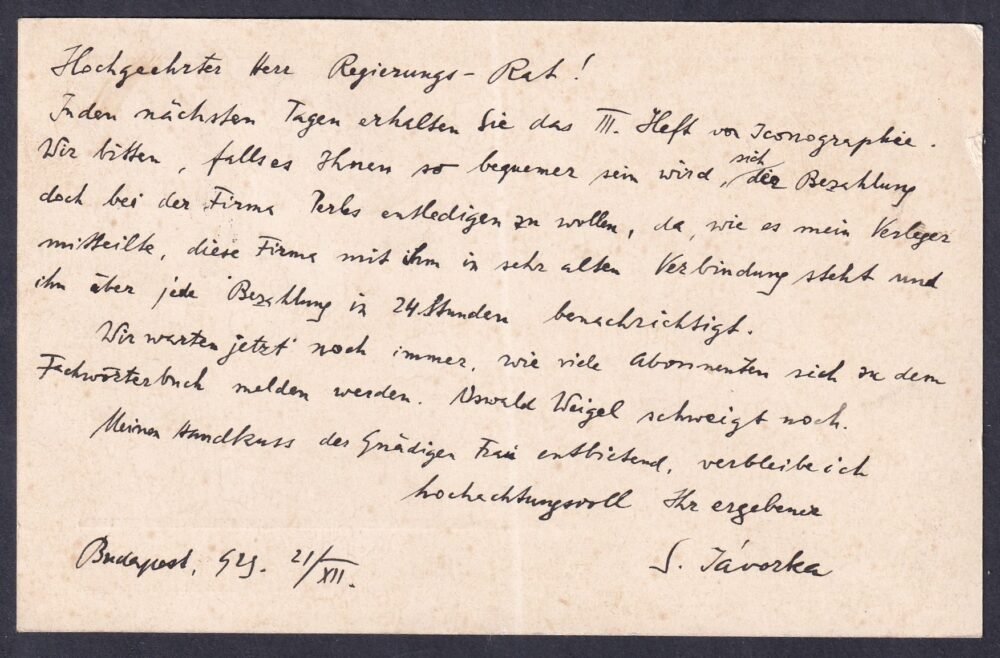 Hochgeehrter Herr Regierungs-Rat!
In den nächsten Tagen erhalten Sie das III. Heft von Iconographie.
Wir bitten, falls es Ihnen so bequemer sein wird, sich der Bezahlung
doch bei der Firma Perles entledigen zu wollen, da, wie es mein Verleger
mitteilte, diese Firma mit ihm in sehr alten Verbindung steht und
ihn über jede Bezahlung in 24 Stunden benachrichtigt.
Wir warten jetzt noch immer, wie viele Abonnenten sich zu dem
Fachwörterbuch melden werden. Oswald Weigel schweigt noch.
Meinen Handkuss der Gnädigen Frau entbietend, verbleibe ich
hochachtungsvoll Ihr ergebener
S. Jávorka
Budapest, 929. 21/XII.